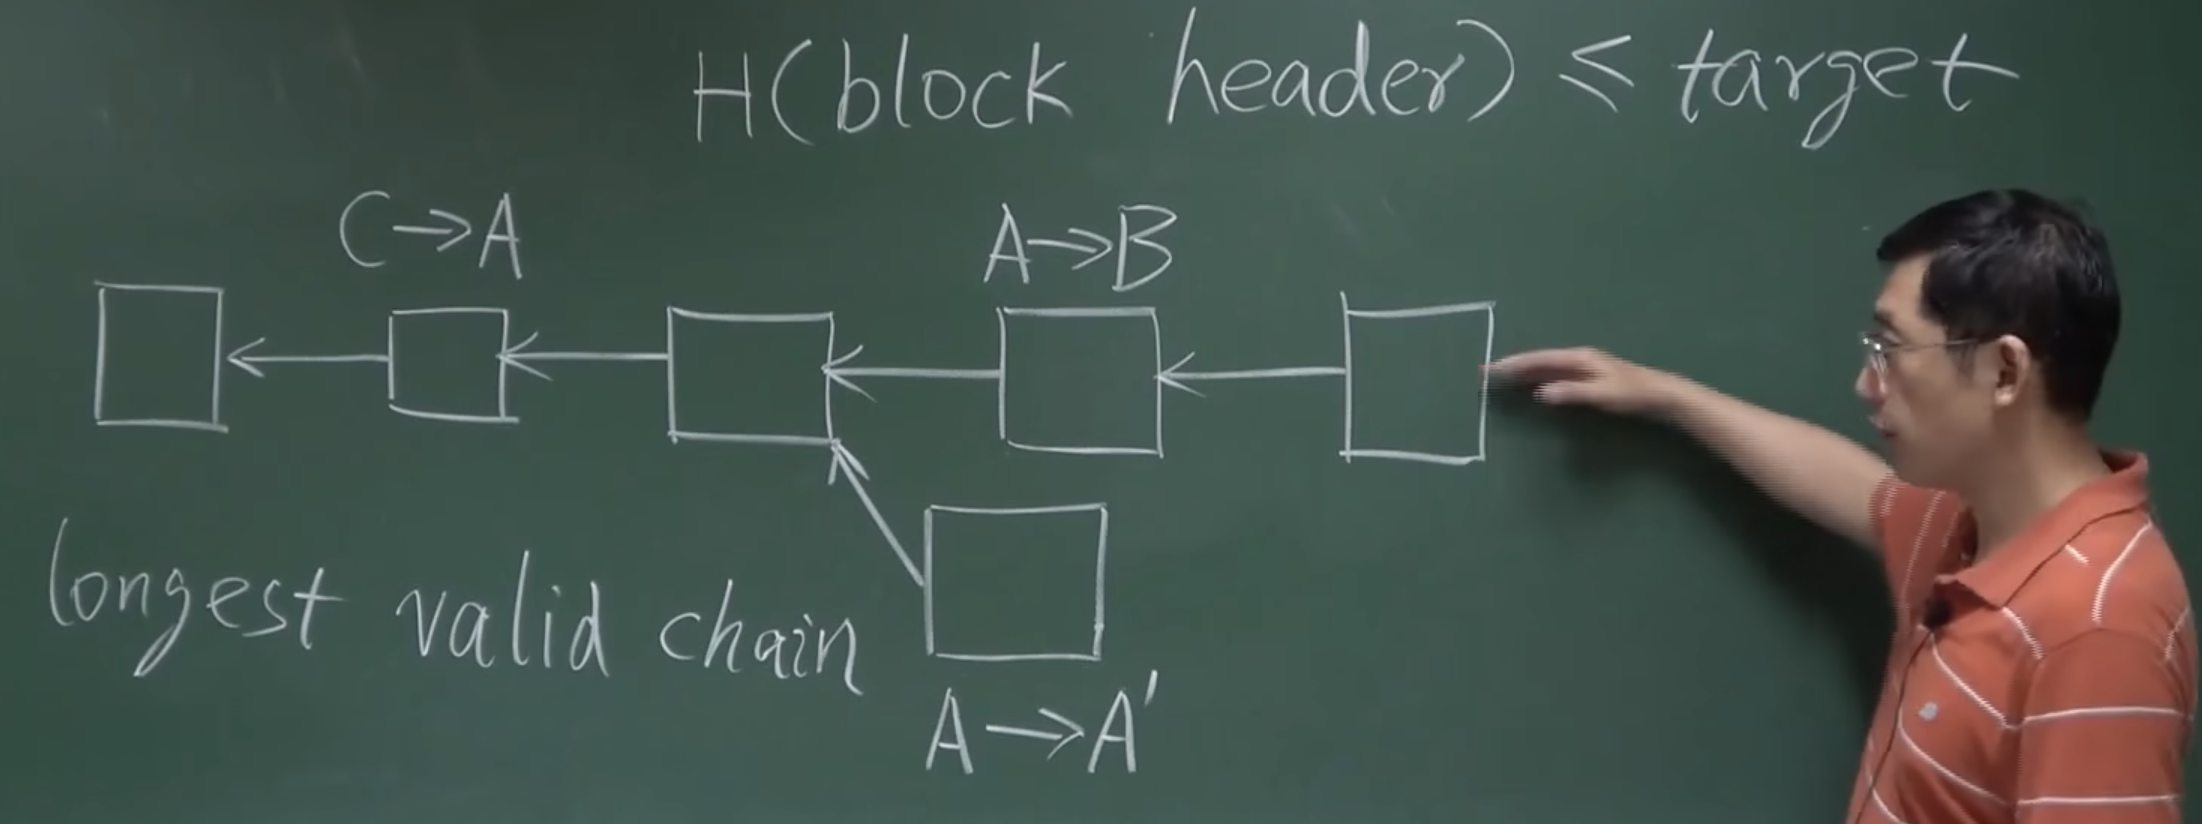 H(block header) ≤ target
C→A
A→B
longest valid chain
A→A'